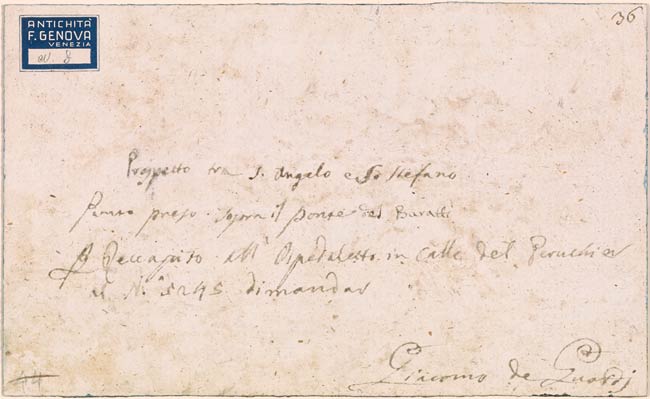 ANTICHITÀ
F. GENOVA
VENEZIA
N. 8
36
Prospetto tra S. Angelo e S. Stefano
Punto preso sopra il Ponte dei Baratti
A Reccapito all' Ospedaletto in Calle del Peruchier
al N.° 5245 dimandar
44
Giacomo de Guardi